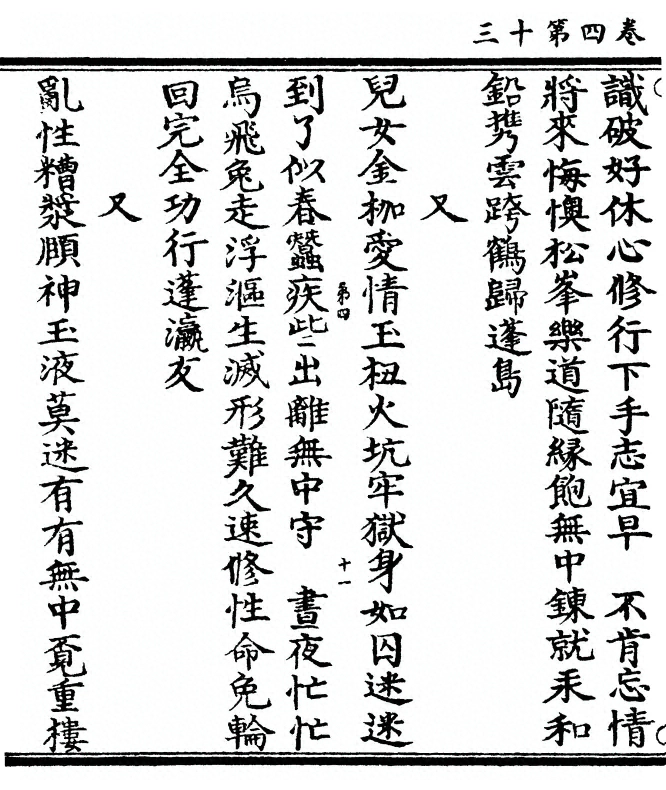 三十第四卷
識破好休心修行下手志宜早　不肯忘情
將來悔懊松峯樂道隨緣飽無中鍊就汞和
鉛携雲跨鶴歸蓬島
又
兒女金枷愛情玉杻火坑牢獄身如囚迷迷
到了似春蠶疾些二出離無中守　晝夜忙忙
烏飛兔走浮漚生滅形難久速修性命免輪
回完全功行蓬瀛友
又
亂性糟漿頤神玉液莫迷有有無中覓重樓
第四
十一